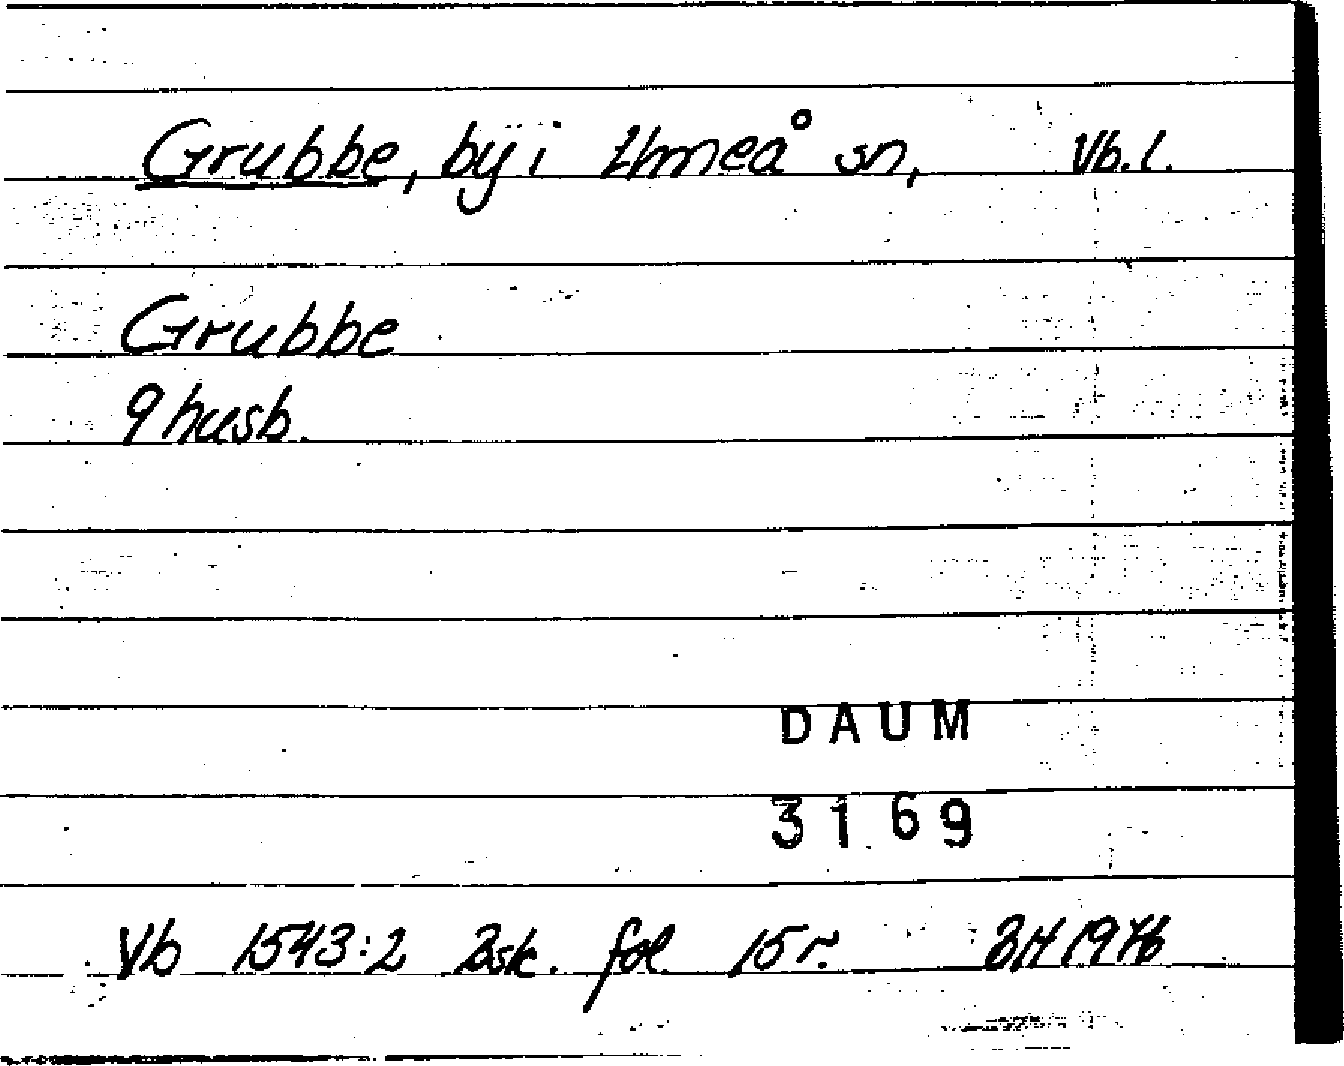 Grubbe, by i Umeå sn, Vb.l.
Grubbe
9 husb.
DAUM
3169
Vb 1543:2 Bsk. fol 15 r. BH 1976